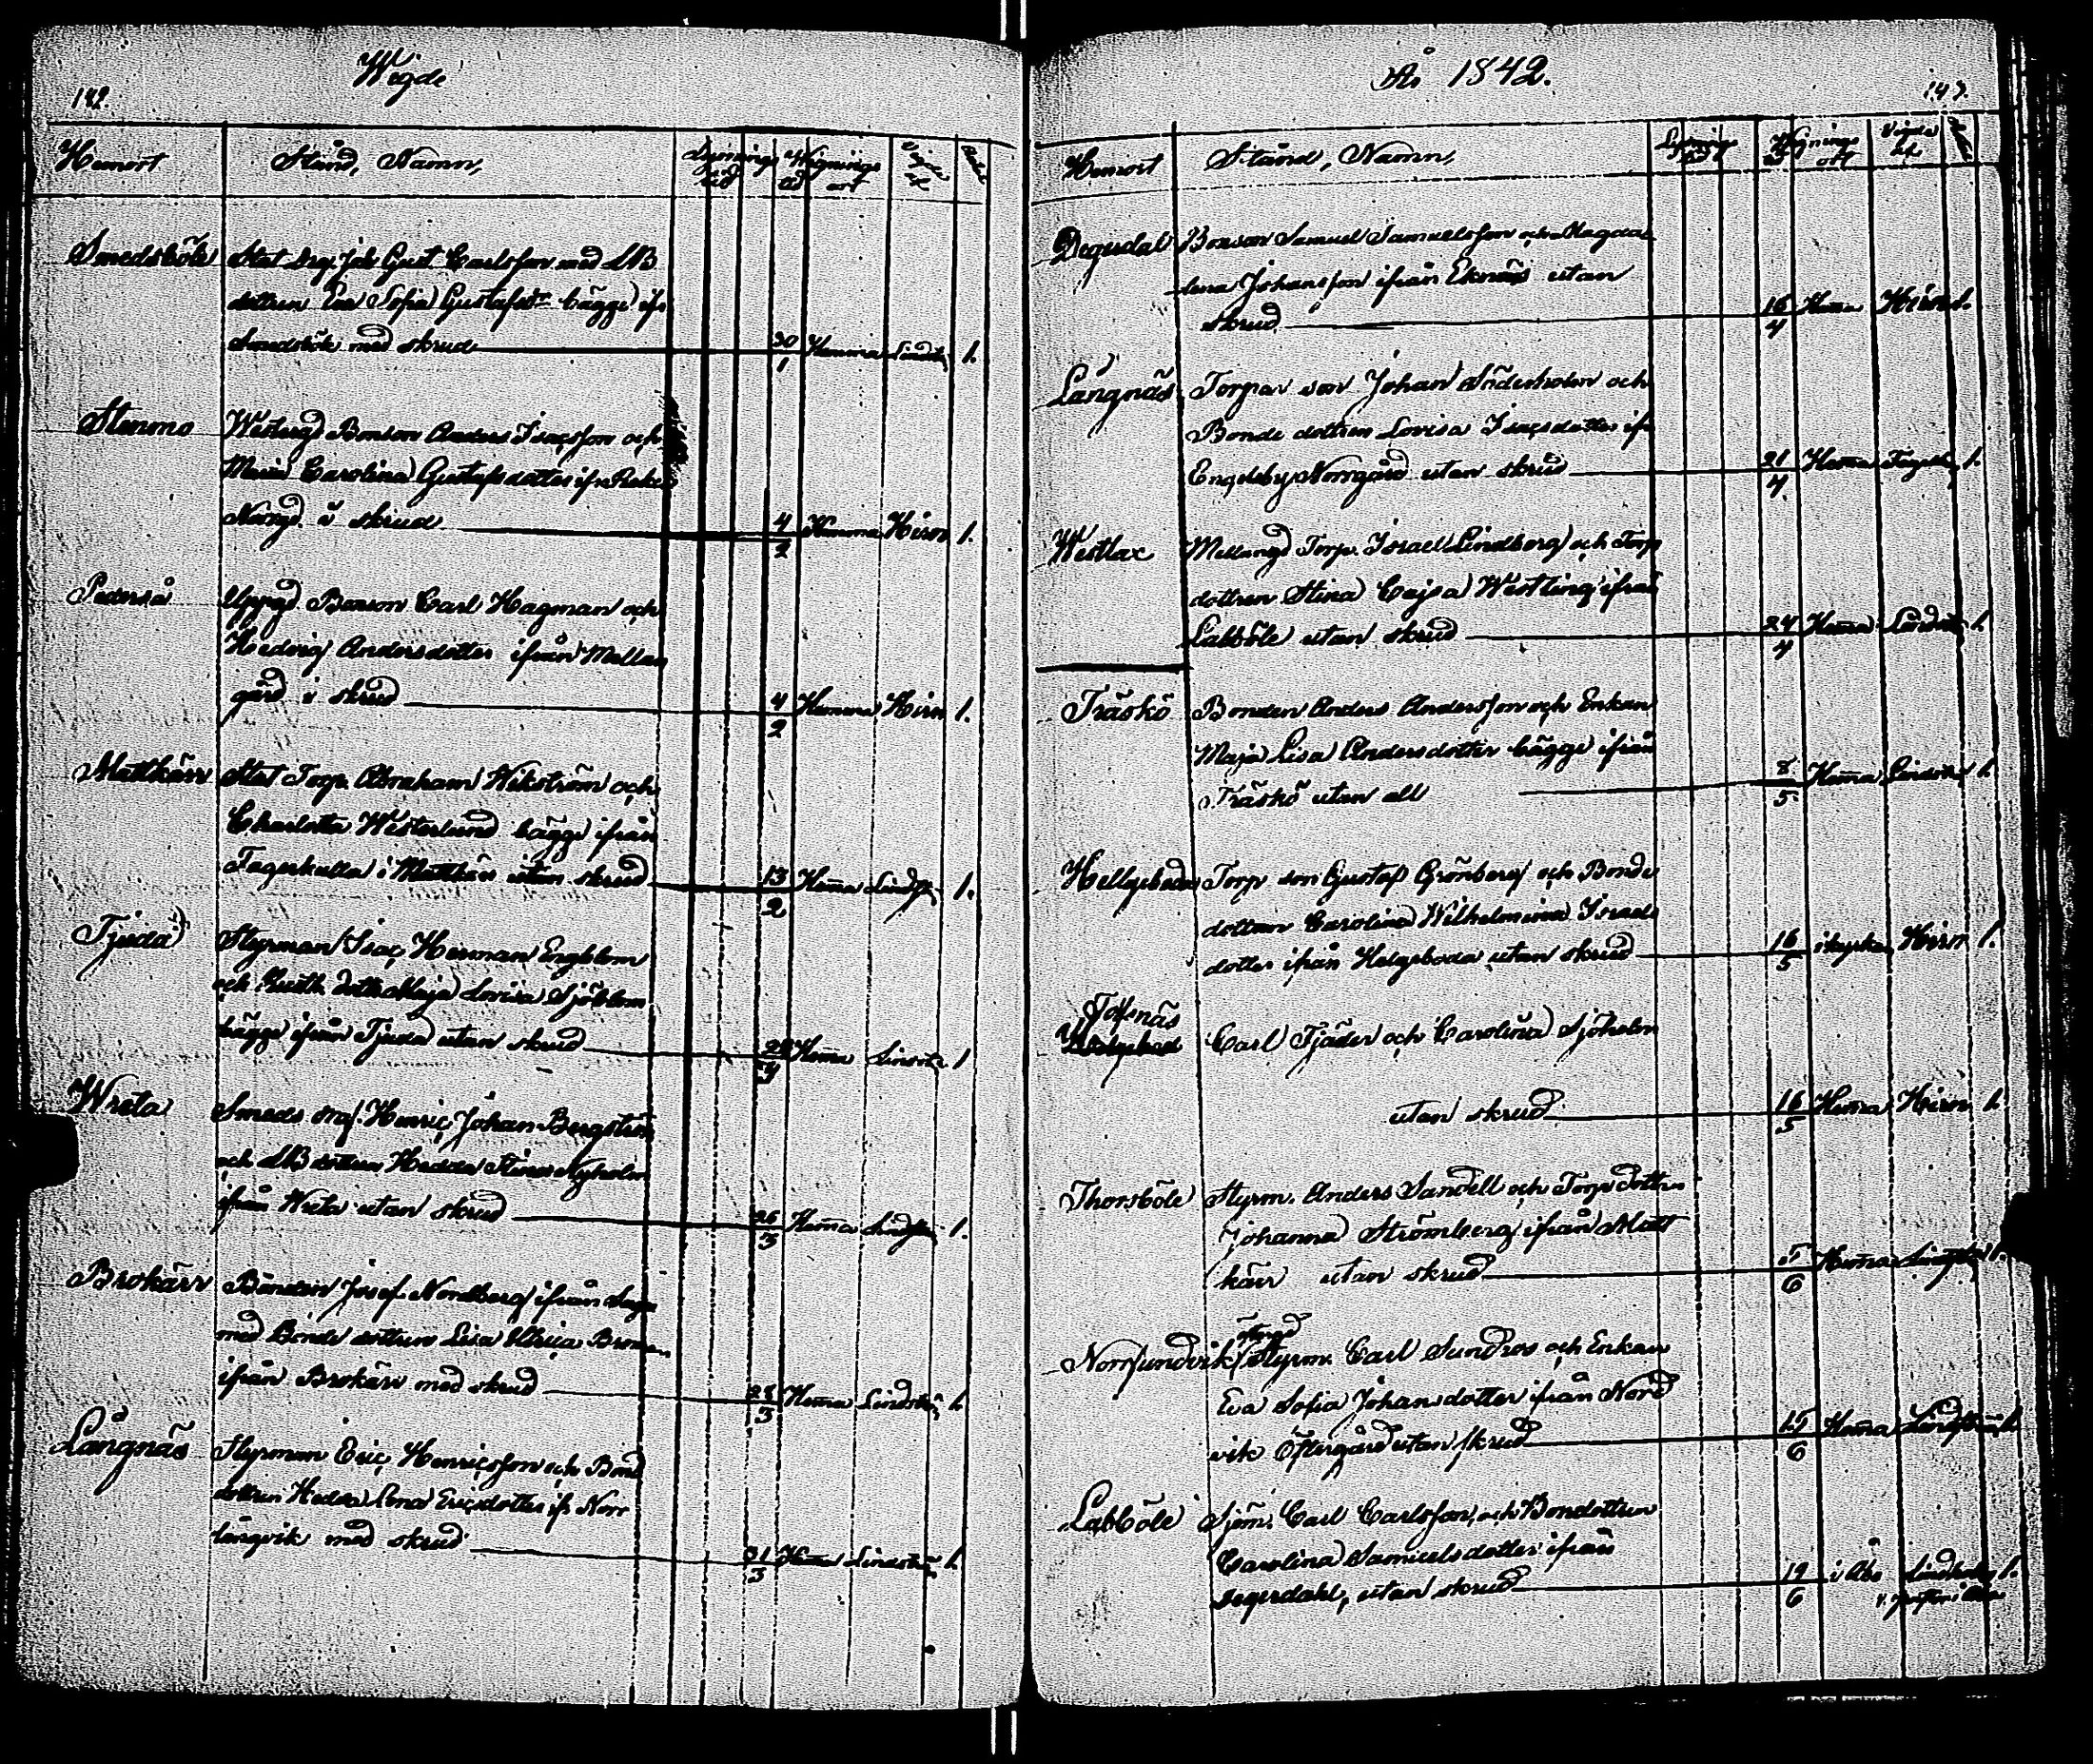 Wigde
142.
Hemort Stånd, Namn, Lysnings tid Wignings tid ort Vigde af
Smedsböle Stat drg. Jak Gust Carlsson med
dottren Eva Sofia Gustafsdr bägge ifr
Smedsböle med skrud 30/1 Hemma Lindstr 1.
Stenmo Westergd Bonson Anders Isaçsson och
Maria Carolina Gustafsdotter ifr
Norrgd. i skrud 4/2 Hemma Hirn 1.
Pederså Uppgd. Bonson Carl Hagman och
Hedvig Andersdotter ifrån Mellan
gård i skrud 4/2 Hemma Hirn 1.
Mattkärr Stat Torp. Abraham Wikström och
Charlotta Westerlund bägge ifrån
Fagerkulla i Mattkärr utan skrud 13/2 Hemma Lindstr 1.
Tjuda Styrman Isaç Herman Engblom
och dottr Maja Lovisa Sjöblom
bägge ifrån Tjuda utan skrud Hemma 1
Wreta Smeds Henriç Johan Bergström
och dottren Hedda Stina Nyholm
ifrån Wreta utan skrud 26/3 Hemma Lindstr 1.
Brokärr Bonden Josef Nordberg ifrån
med Bonde dottren Lisa Ulrica
ifrån Brokärr med skrud 28/3 Hemma Lindstr 1.
Långnäs Styrman Eriç Henriçsson och Bond
dottren Hedda Lena Eriçsdotter ifr Norr
långvik med skrud 31/3 Hemma Lindström 1.
År 1842.
143.
Hemort Stånd, Namn, Lysnings tid Wignings tid ort Vigde af
Degerdal Bonson Samuel Samuelsson och Magda
lena Johansson ifrån Eknäs utan
skrud 16/4 Hemma Hirn 1.
Långnäs Torpar son Johan Söderholm och
Bonde dottren Lovisa Isaçsdotter ifr
Engelsby Norrgård utan skrud 21/4. Hemma 1.
Westlax Mellangd Torp. Israel Lindberg och Torp
dottren Stina Cajsa Westling ifrån
Labböle utan skrud 24/4 Hemma Lindstr 1.
Träskö Bonden Anders Andersson och Enkan
Maja Lisa Andersdotter bägge ifrån
Träskö utan all 8/5 Hemma Lindstr 1.
Helgeboda Torp son Gustaf Grönberg och Bonde
dottren Carolina Wilhelmina Israels
dotter ifrån Helgeboda utan skrud 16/5 i kyrka Hirn 1.
Tolfsnäs
Carl Tjäder och Carolina Sjöholm
utan skrud 16/5 Hemma Hirn 1.
Thorsböle Styrm. Anders Sandell och Torp dottren
Johanna Strömberg ifrån Matt
kärr utan skrud 5/6 Hemma Lindstr 1.
Norrsundvik Styrm. Carl Sundros och Enkan
Eva Sofia Johansdotter ifrån Nord
vik Östergård utan skrud 15/6 Hemma Lindström 1.
Labböle Sjöm. Carl Carlsson, och Bondottren
Carolina Samuelsdotter ifrån
Degerdahl, utan skrud 19/6 i Åbo 1.